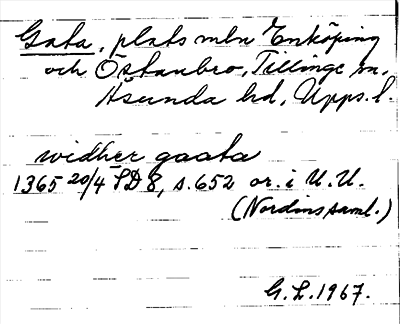 Gata, plats mln Enköping
och Östanbro, Tillinge sn,
Åsunda hd, Upps. l.
widher gaata
1365 20/4 SD 8, s. 652 or. i U.U.
(Nordins saml.)
G. L. 1967.